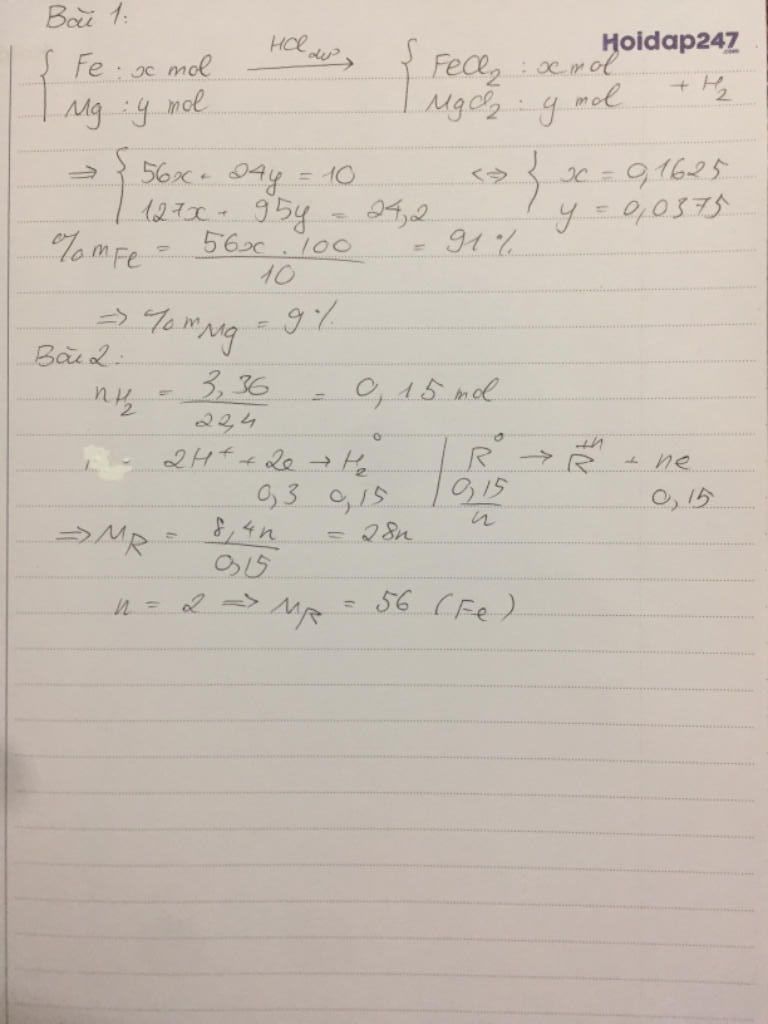 Bài 1:
Hoidap247.com
{ Fe : x mol —HCl dư→ { FeCl₂ : x mol
Mg : y mol MgCl₂ : y mol + H₂
⇒ { 56x + 24y = 10 ⇔ { x = 0,1625
127x + 95y = 24,2 y = 0,0375
%mFe = 56x . 100 / 10 = 91%
⇒ %mMg = 9%
Bài 2:
nH₂ = 3,36 / 22,4 = 0,15 mol
2H⁺ + 2e → H₂⁰ | R⁰ → R⁺ⁿ + ne
0,3 0,15 | 0,15/n 0,15
⇒ MR = 8,4n / 0,15 = 28n
n = 2 ⇒ MR = 56 (Fe)